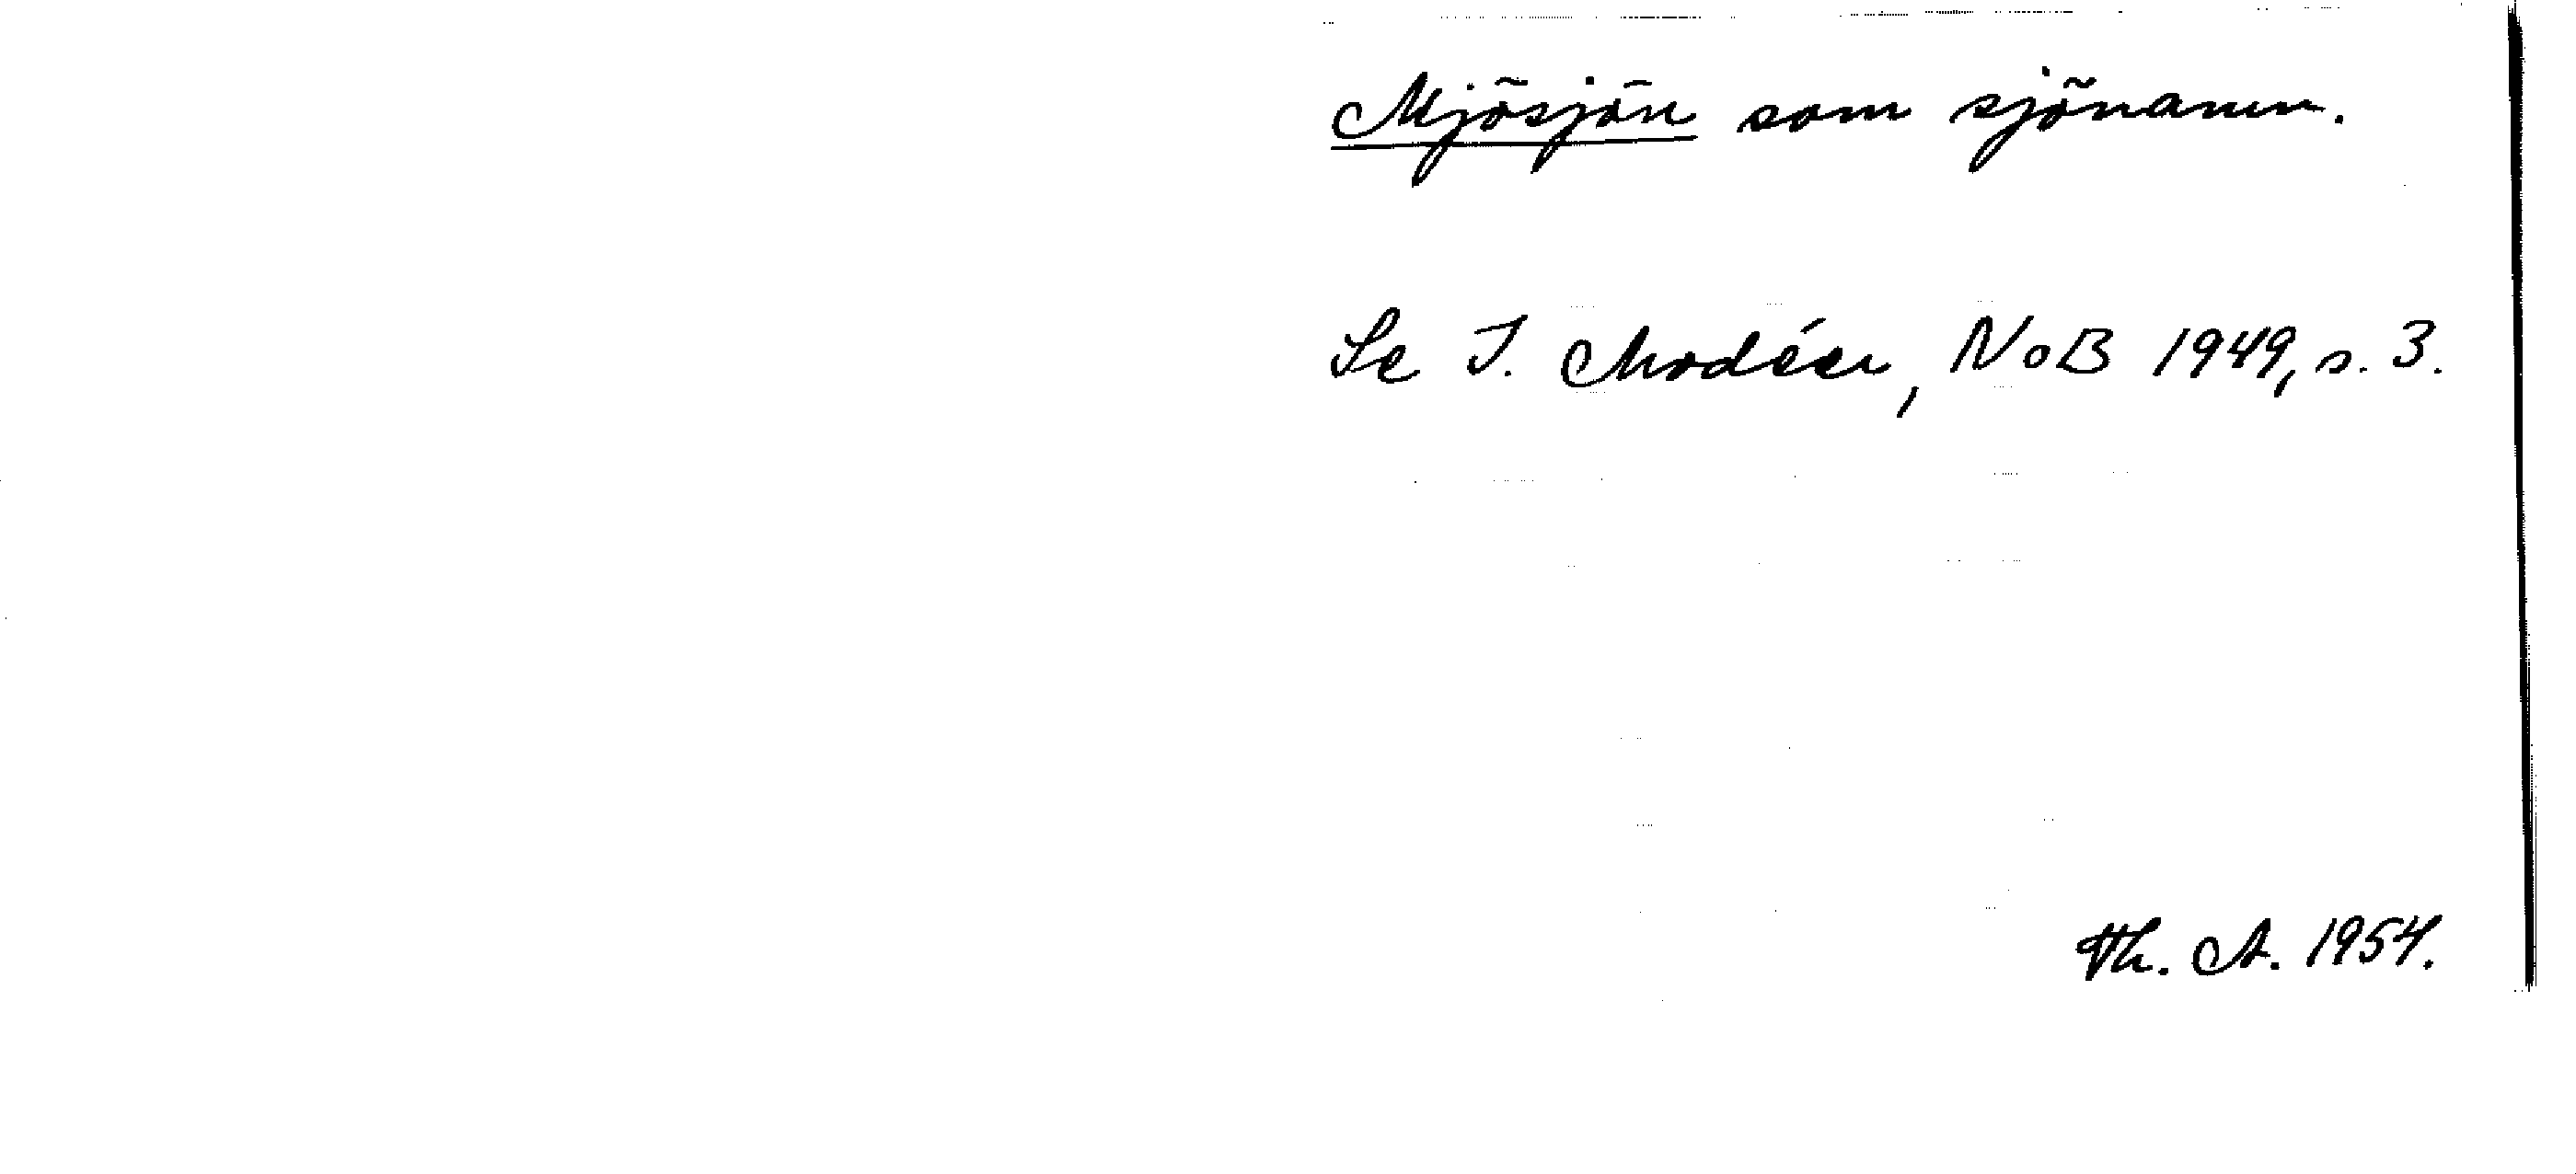 Mjösjön som sjönamn.
Se I. Modéer, NoB 1949, s. 3.
Th. A. 1954.